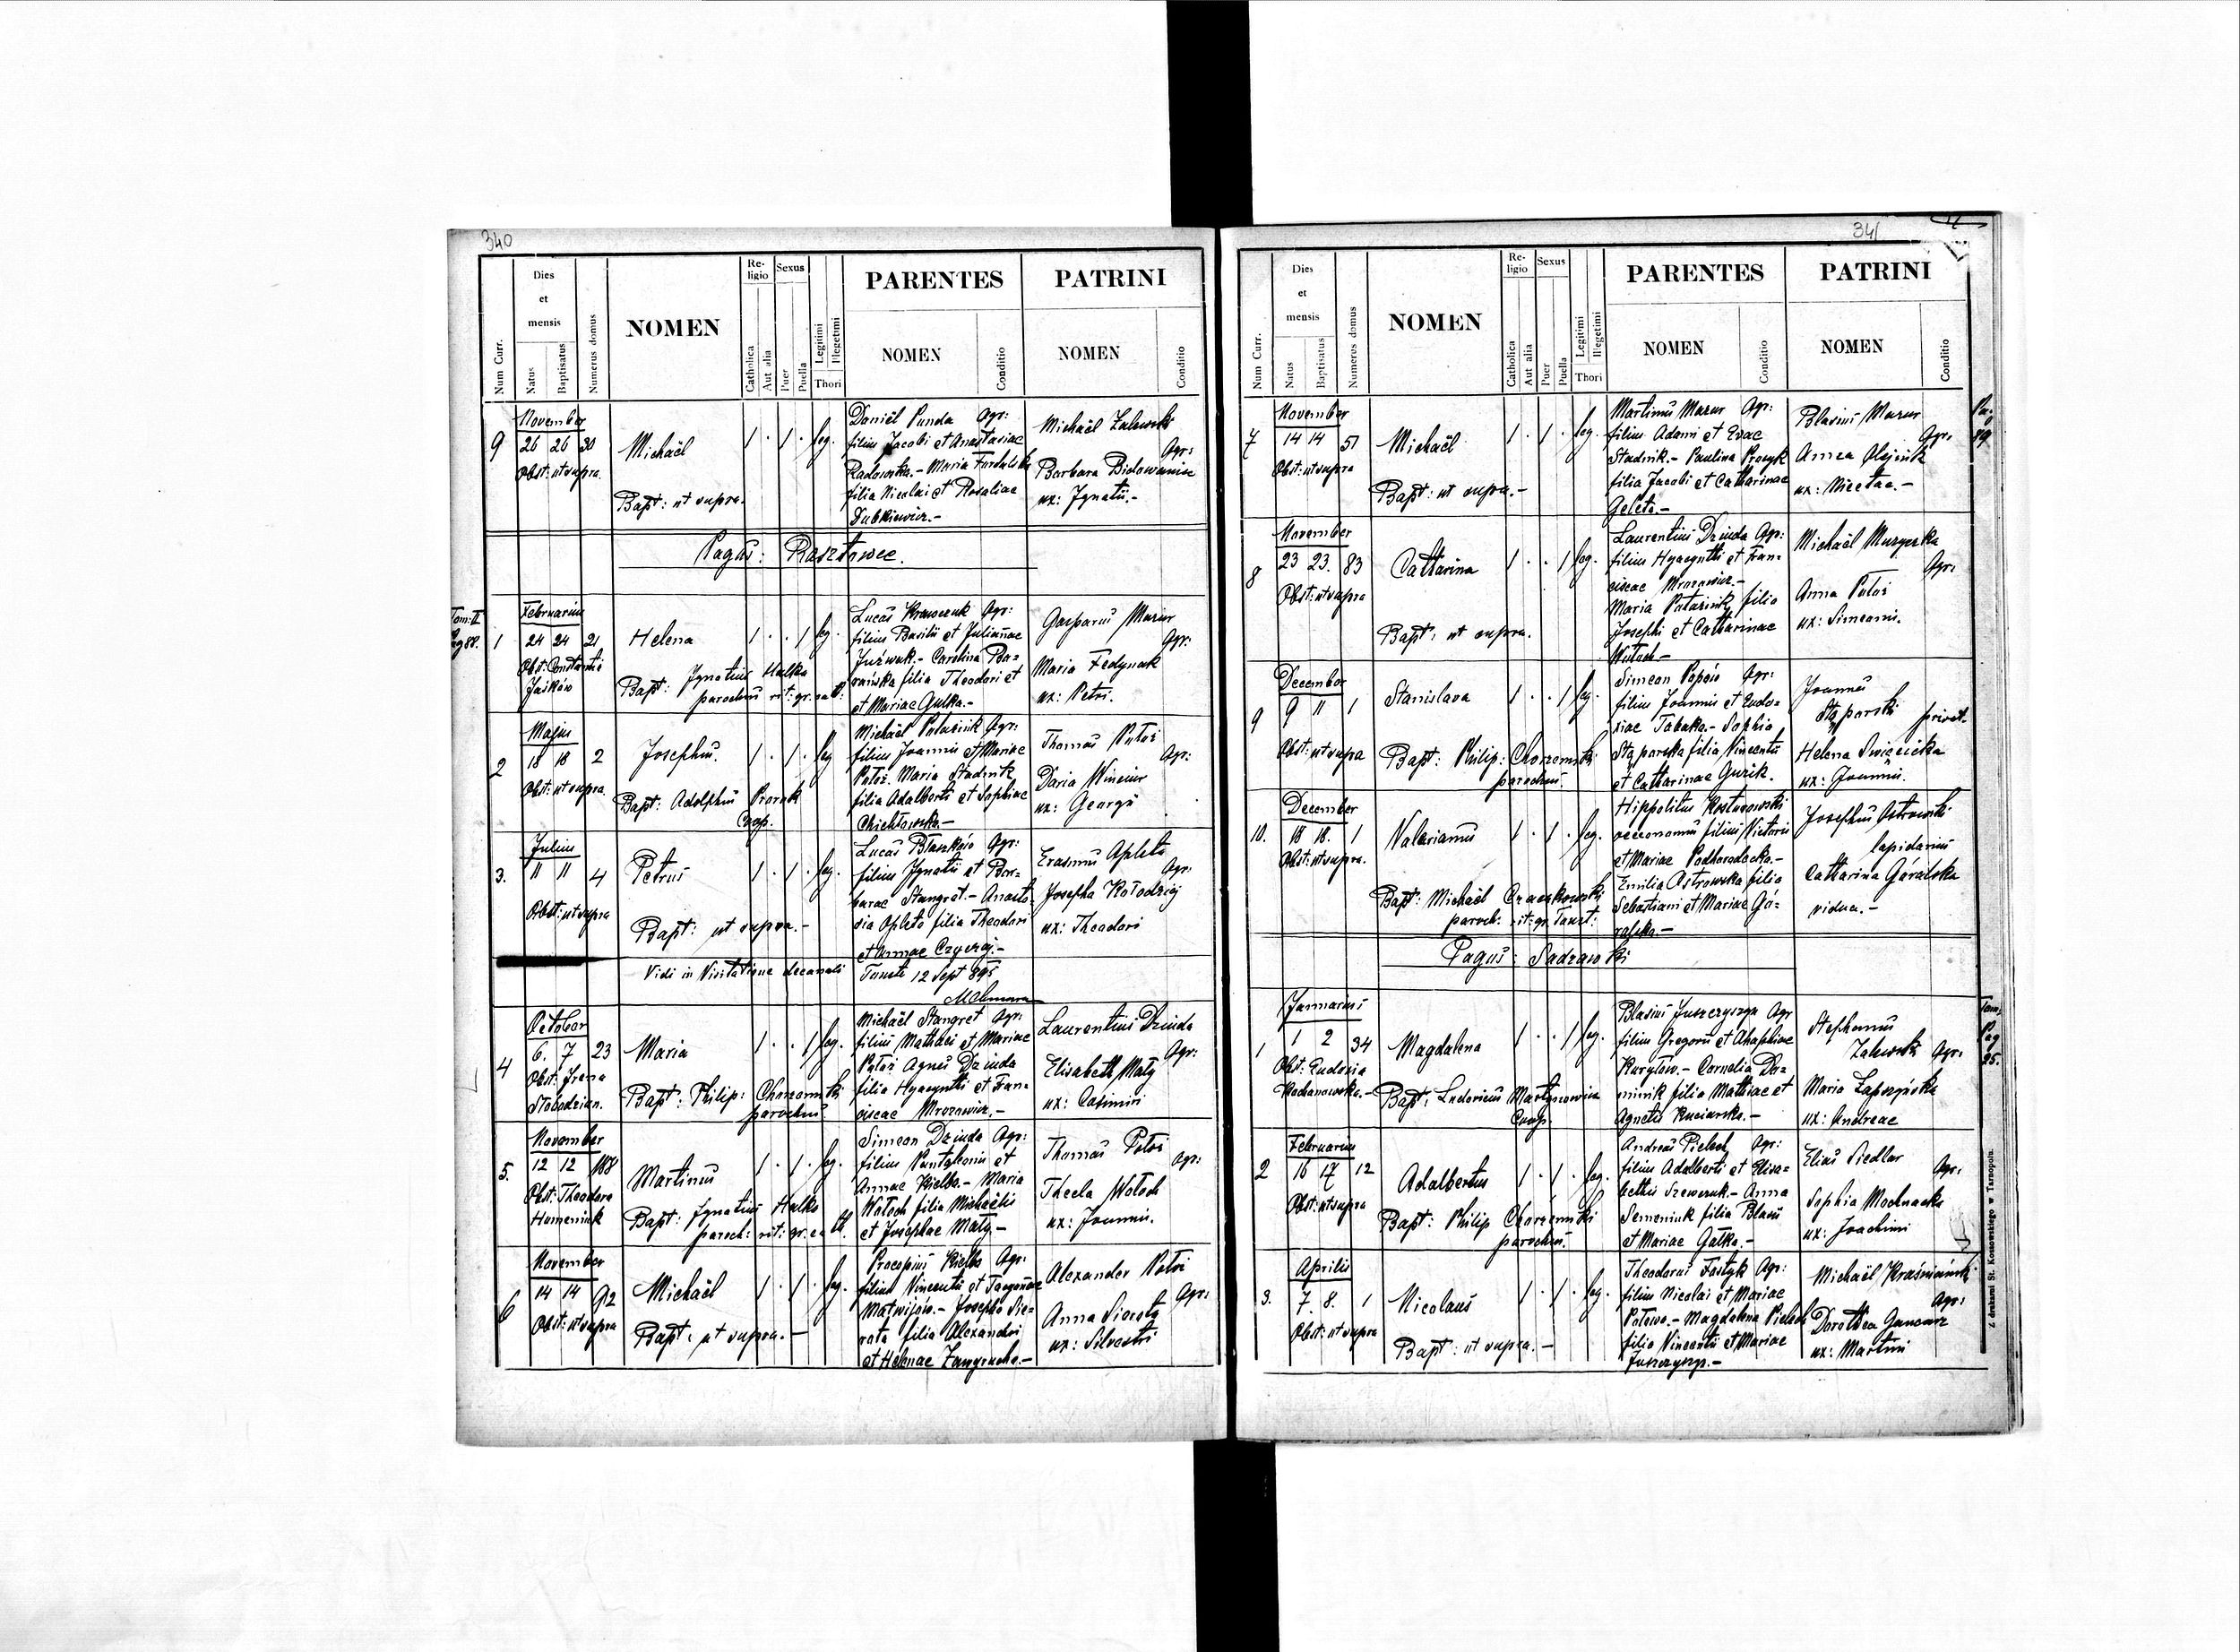 340
Num Curr.
Dies et mensis
Natus
Baptisatus
Numerus domus
NOMEN
Religio
Catholica
Aut alia
Sexus
Puer
Puella
Legitimi
Illegetimi
Thori
PARENTES
NOMEN
Conditio
PATRINI
NOMEN
Conditio
9
November
26 26 30
Obst: ut supra
Michaël
Bapt: ut supra.
1 . 1 . leg.
Daniël Punda Agr:
filius Jacobi et Anastasiae
Radowska.- Maria
filia Nicolai et Rosaliae
Dubkiewicz.-
Michaël Zalewski
Agr:
Barbara
ux: Ignatii.-
Pagus: Rasztowce.
Tom: II
Pag 88.
1
Februarius
24 24 21
Obst: Constantia
Jaśków
Helena
Bapt: Ignatius Halko
parochus rit: gr: cat:
1 . . 1 leg.
Lucas Krawczuk Agr:
filius Basilii et Juliannae
Juźwuk.- Carolina Ba-
rańska filia Theodori et
et Mariae Gulka.-
Gasparus Mazur
Agr:
Maria Fedynak
ux: Petri.
2
Majus
18 18 2
Obst: ut supra
Josephus.
Bapt: Adolphus Prorok
Coop.
1 . 1 . leg
Michaël Putaźnik Agr:
filius Joannis et Mariae
Patoź. Maria Studnik
filia Adalberti et Sophiae
Chichłowska.-
Thomas Patoź
Agr:
Daria Winciur
ux: Georgii
3.
Julius
11 11 4
Obst: ut supra
Petrus
Bapt: ut supra.-
1 . 1 . leg.
Lucas Błaszków Agr:
filius Ignatii et Bar-
barae Stangret.- Anasta-
sia Apleta filia Theodori
et Annae Czyczyj.-
Erasmus Apleta
Agr:
Josepha Kołodziej
ux: Theodori
Vidi in Visitatione decanali
Touste 12 Sept 895
4
October
6. 7 23
Obst: Irena
Słobodzian.
Maria
Bapt: Philip: Chorzemski
parochus
1 . . 1 leg.
Michaël Stangret Agr:
filius Mathaei et Mariae
Patoź Agnes Dziuda
filia Hyacynthi et Fran-
ciscae Mrozowicz.-
Laurentius Dziuda
Agr:
Elisabeth Mały
ux: Casimiri
5.
November
12 12 188
Obst: Theodora
Humeniuk
Martinus
Bapt: Ignatius Halko
paroch: rit: gr. cath.
1 . 1 . leg.
Simeon Dziuda Agr:
filius Pantyleonis et
Annae Kielba.- Maria
Wołoch filia Michaëlis
et Josephae Mały.-
Thomas Patoź
Agr:
Thecla Wołoch
ux: Joannis.
6
November
14 14 92
Obst: ut supra
Michaël
Bapt: ut supra.-
1 . 1 . leg.
Procopius Kielba Agr:
filius Vincentii et
Matwijów.- Josepha Sie-
rota filia Alexandri
et Helenae
Alexander Patoź
Agr:
Anna Sierota
ux: Silvestri
341
Num Curr.
Dies et mensis
Natus
Baptisatus
Numerus domus
NOMEN
Religio
Catholica
Aut alia
Sexus
Puer
Puella
Legitimi
Illegetimi
Thori
PARENTES
NOMEN
Conditio
PATRINI
NOMEN
Conditio
7
November
14 14 51
Obst: ut supra
Michaël
Bapt: ut supra.-
1 . 1 . leg.
Martinus Mazur Agr:
filius Adami et Evae
Studnik.- Paulina Procyk
filia Jacobi et Catharinae
Geleta.-
Blasius Mazur
Agr:
Anna Olejnik
ux: Nicetae.-
Pag
89.
8
November
23 23. 83
Obst: ut supra
Catharina
Bapt: ut supra.
1 . . 1 leg.
Laurentius Dziuda Agr:
filius Hyacynthi et Fran-
ciscae Mrozowicz.-
Maria Putaźnik filia
Josephi et Catharinae
Wołoch.-
Michaël Muzyczka
Agr:
Anna Patoź
ux: Simeonis.
9
December
9 11 1
Obst: ut supra
Stanislava
Bapt: Philip: Chorzemski
parochus.
1 . . 1 leg.
Simeon Popów Agr:
filius Joannis et Eudo-
xiae Tabaka.- Sophia
Stąporska filia Vincentii
et Catharinae Guzik.
Joannes
Stąporski privat.
Helena Swięcicka
ux: Joannis.
10.
December
18 18. 1
Obst: ut supra.
Valerianus
Bapt: Michaël Czaczkowski
paroch: rit: gr: Toust:
1 . 1 . leg.
Hippolitus Kosturowski
oeconomus filius Victoris
et Mariae Podhorodecka.-
Emilia Ostrowska filia
Sebastiani et Mariae Gó-
ralska.-
Josephus Ostrowski
lapidarius
Catharina Góralska
vidua.-
Pagus: Sadzawki
1
Januarius
1 2 34
Obst: Eudoxia
Kochanowska.-
Magdalena
Bapt: Ludovicus Martynowicz
Coop.
1 . . 1 leg.
Blasius Juszczyszyn Agr
filius Gregorii et Ahaphiae
Kuryłow.- Cornelia Do-
minik filia Mathiae et
Agnetis Kuciarska.-
Stephanus
Zalewski Agr:
Maria Łapszyńska
ux: Andreae
Tom:
Pag
25.
2
Februarius
16 17 12
Obst: ut supra
Adalbertus
Bapt: Philip Chorzemski
parochus.
1 . 1 . leg.
Andreas Pielech Agr:
filius Adalberti et Elisa-
bethis Szewczuk.- Anna
Semeniuk filia Blasii
et Mariae Gałka.-
Elias Siedlar
Agr:
Sophia Mochnacka
ux: Joachimi
3.
Aprilis
7. 8. 1
Obst: ut supra
Nicolaus
Bapt: ut supra.-
1 . 1 . leg.
Theodorus Fostyk Agr:
filius Nicolai et Mariae
Magdalena Pielech
filia Vincentii et Mariae
Juszczyszyn.-
Michaël Kraśniański
Agr:
Dorothea Guncarz
ux: Martini
Z drukarni St. Kossowskiego w Tarnopolu.